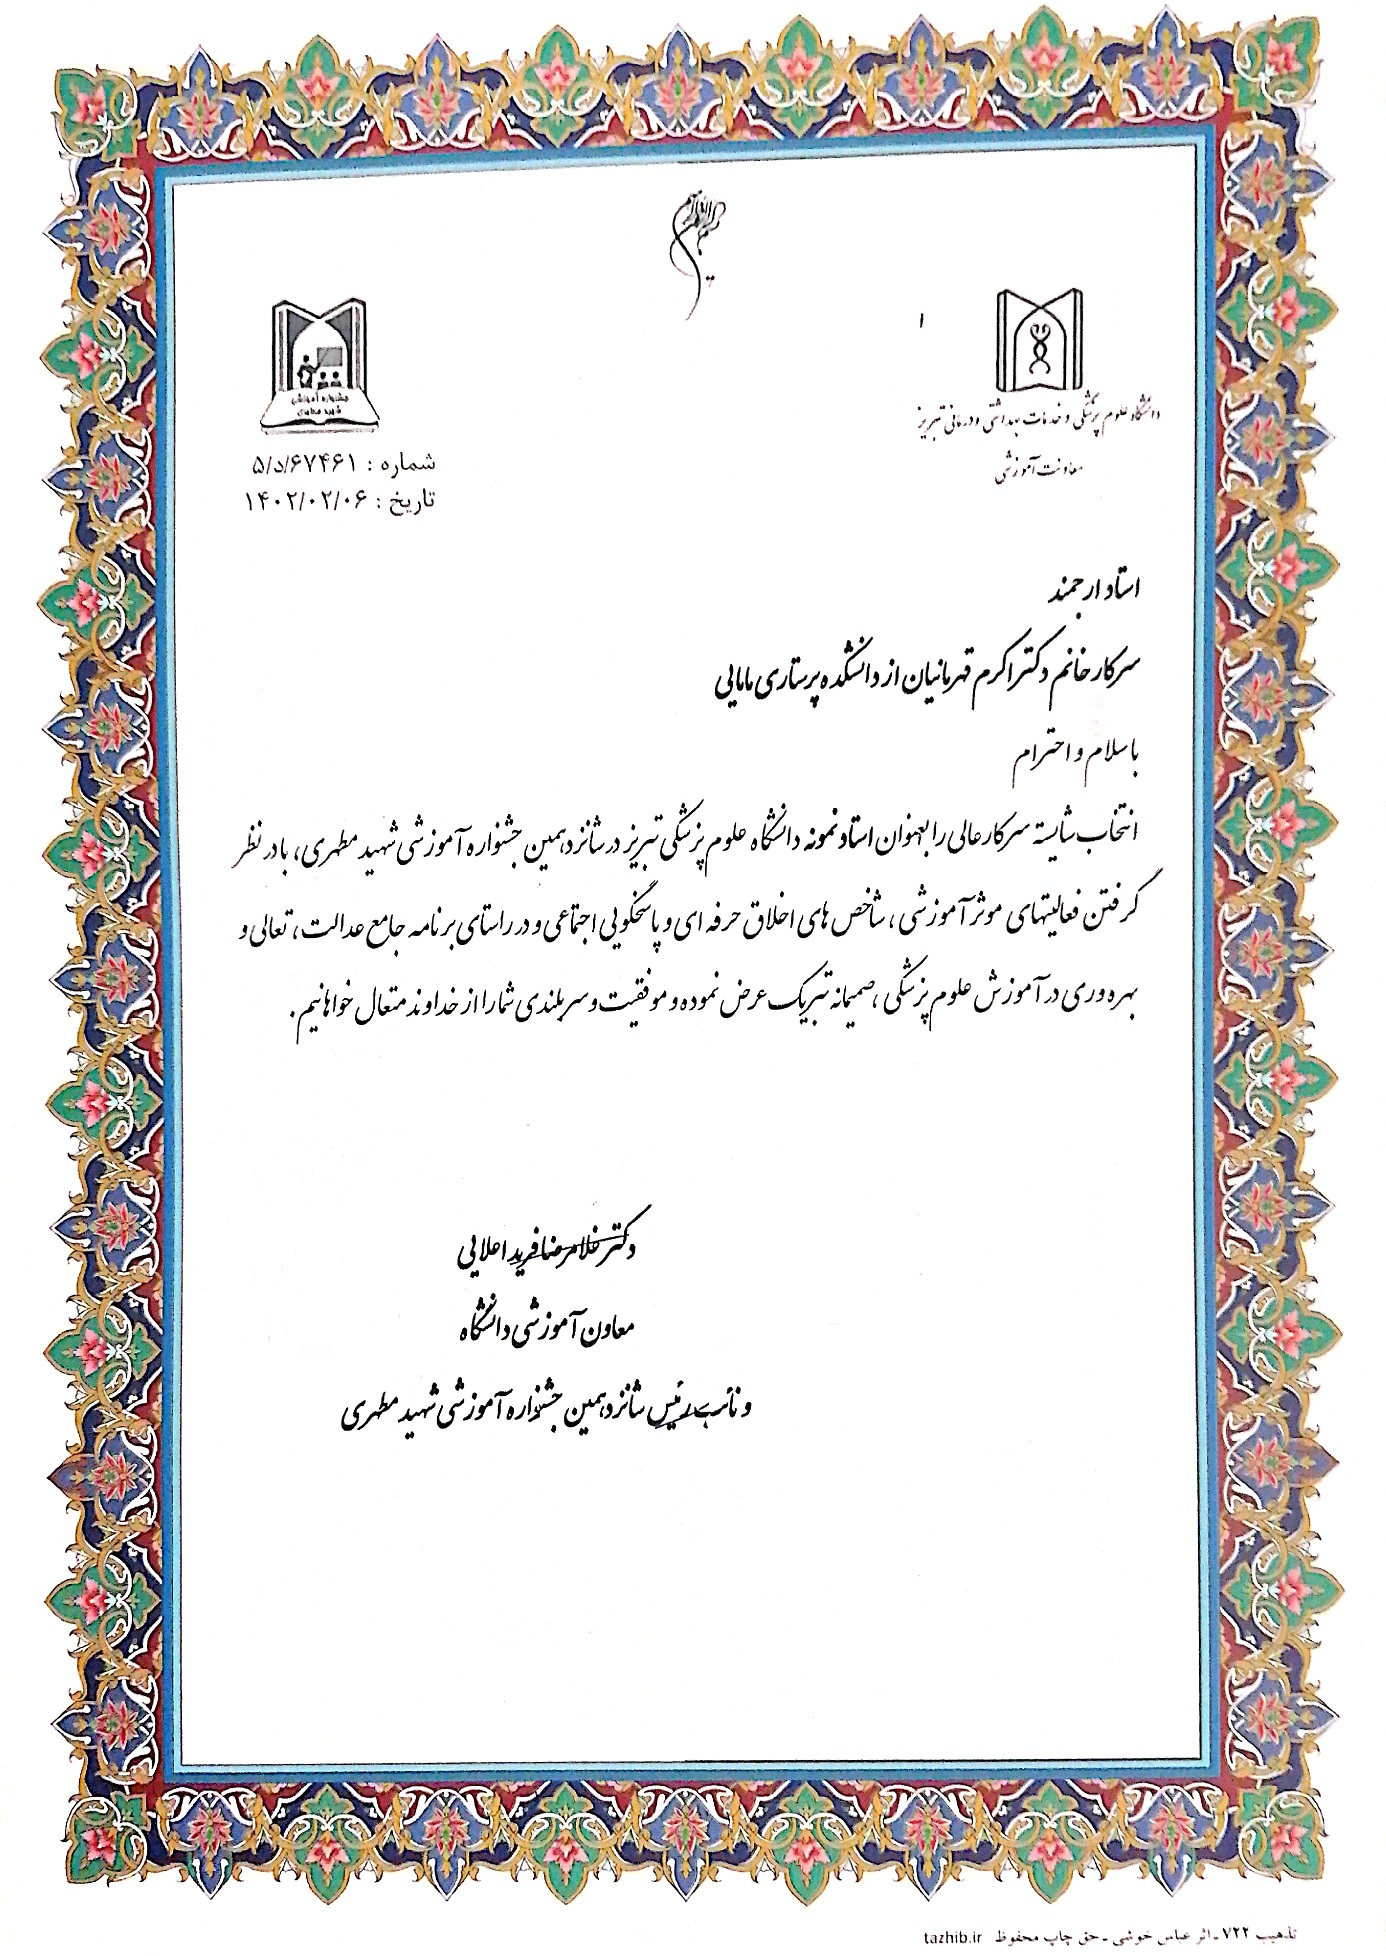 بسم الله الرحمن الرحیم
دانشگاه علوم پزشکی و خدمات بهداشتی و درمانی تبریز
معاونت آموزشی
جشنواره آموزشی
شهید مطهری
شماره : ۵/د/۶۷۴۶۱
تاریخ : ۱۴۰۲/۰۲/۰۶
استاد ارجمند
سرکار خانم دکتر اکرم قهرمانیان از دانشکده پرستاری مامایی
با سلام و احترام
انتخاب شایسته سرکارعالی را بعنوان استاد نمونه دانشگاه علوم پزشکی تبریز در شانزدهمین جشنواره آموزشی شهید مطهری، با در نظر
گرفتن فعالیتهای موثر آموزشی، شاخص های اخلاق حرفه ای و پاسخگویی اجتماعی و در راستای برنامه جامع عدالت، تعالی و
بهره وری در آموزش علوم پزشکی، صمیمانه تبریک عرض نموده و موفقیت و سربلندی شما را از خداوند متعال خواهانیم.
دکتر غلامرضا فرید اعلایی
معاون آموزشی دانشگاه
و نائب رئیس شانزدهمین جشنواره آموزشی شهید مطهری
تذهیب ۷۲۲ - اثر عباس خوشی - حق چاپ محفوظ tazhib.ir